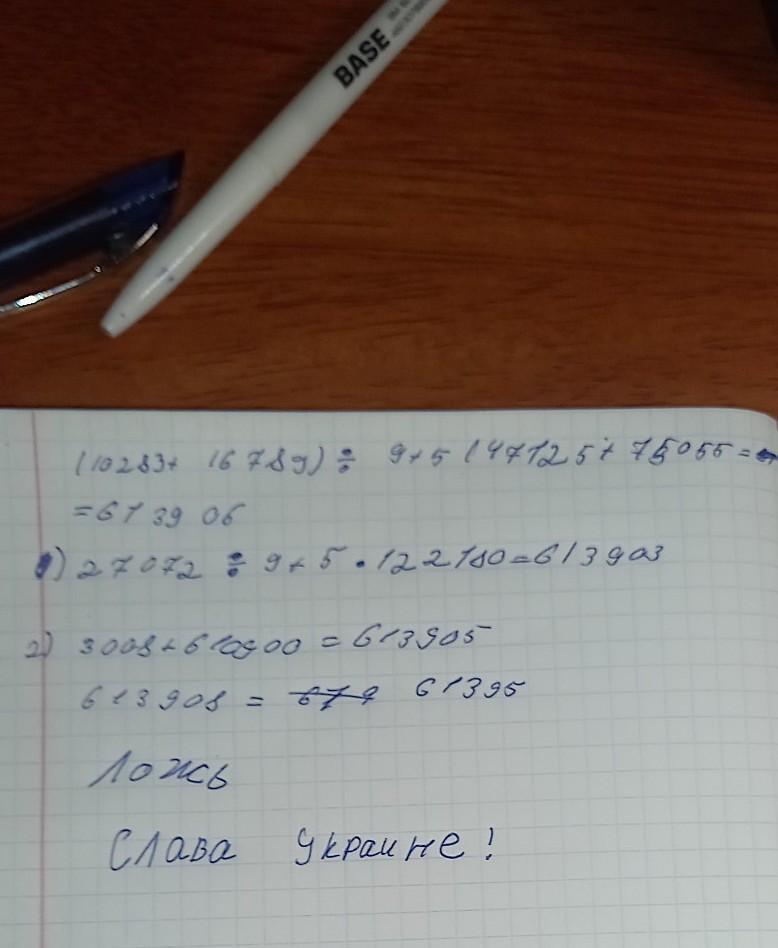 BASE
(10283+ 16789) ÷ 9+5 (47125+ 75055 =
=613906
1) 27072 ÷ 9+5 • 122180=613903
2) 3008+610900 = 613905
613908 = 61395
Ложь
Слава Украине!